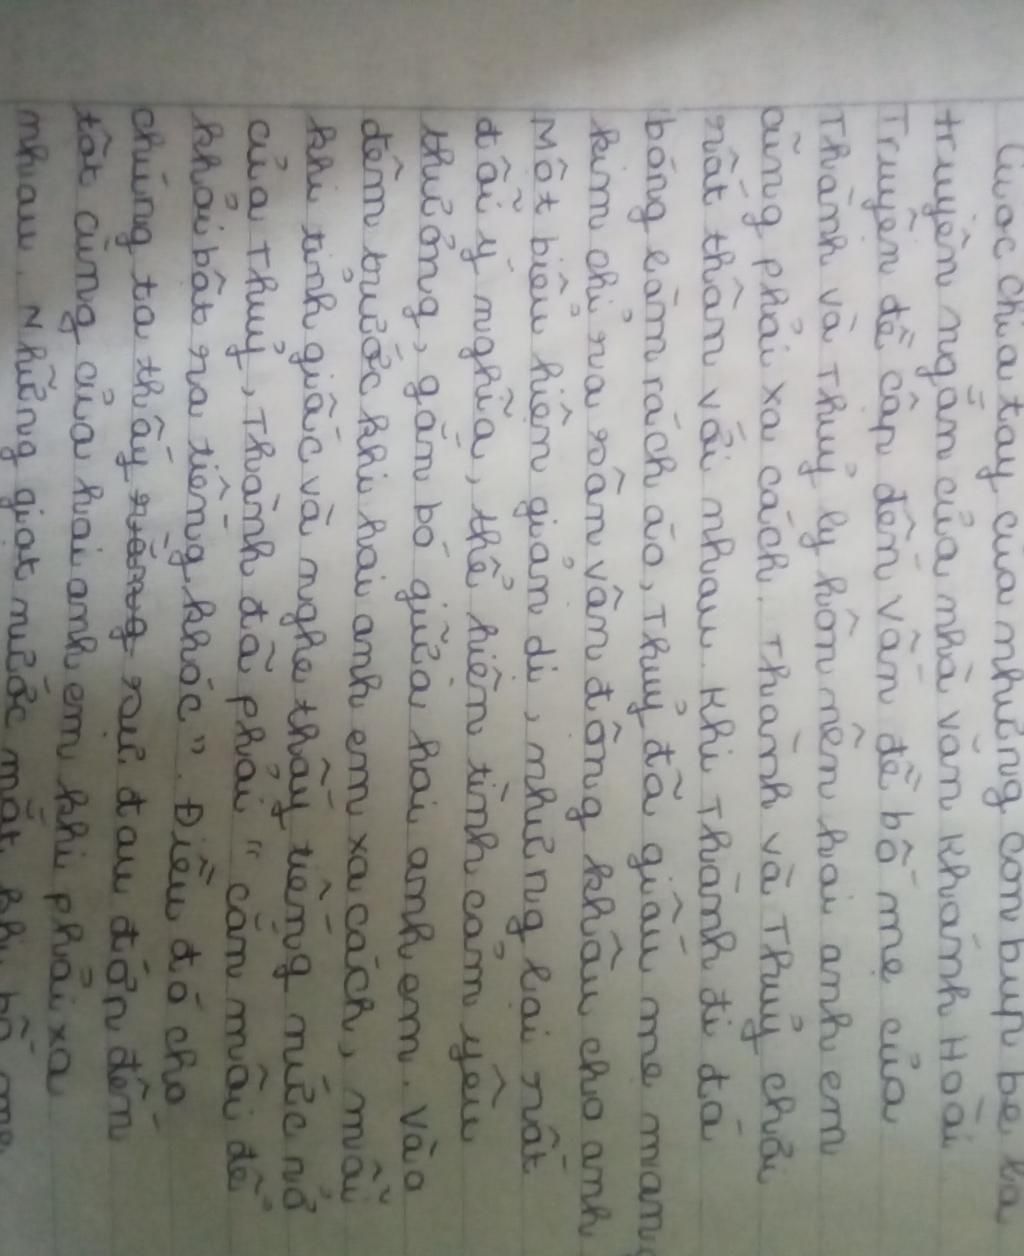 Cuộc chia tay của những con búp bê là
truyện ngắn của nhà văn Khánh Hoài
Truyện đề cập đến vấn đề bố mẹ của
Thành và Thuỷ ly hôn nên hai anh em
cũng phải xa cách. Thành và Thuỷ chơi
rất thân với nhau. Khi Thành đi đá
bóng làm rách áo, Thuỷ đã giấu mẹ mang
kim chỉ ra sân vân đông khâu cho anh
Một biểu hiện giản di, nhưng lại rất
đỗi ý nghĩa, thể hiện tình cảm yêu
thương, gắn bó giữa hai anh em. Vào
đêm trước khi hai anh em xa cách, mỗi
khi tỉnh giấc và nghe thấy tiếng nức nở
của Thuỷ, Thành đã phải "cắn môi để
khỏi bật ra tiếng khóc". Điều đó cho
chúng ta thấy rằng sự đau đớn đến
tột cùng của hai anh em khi phải xa
nhau. Những giọt nước mắt khi bố mẹ